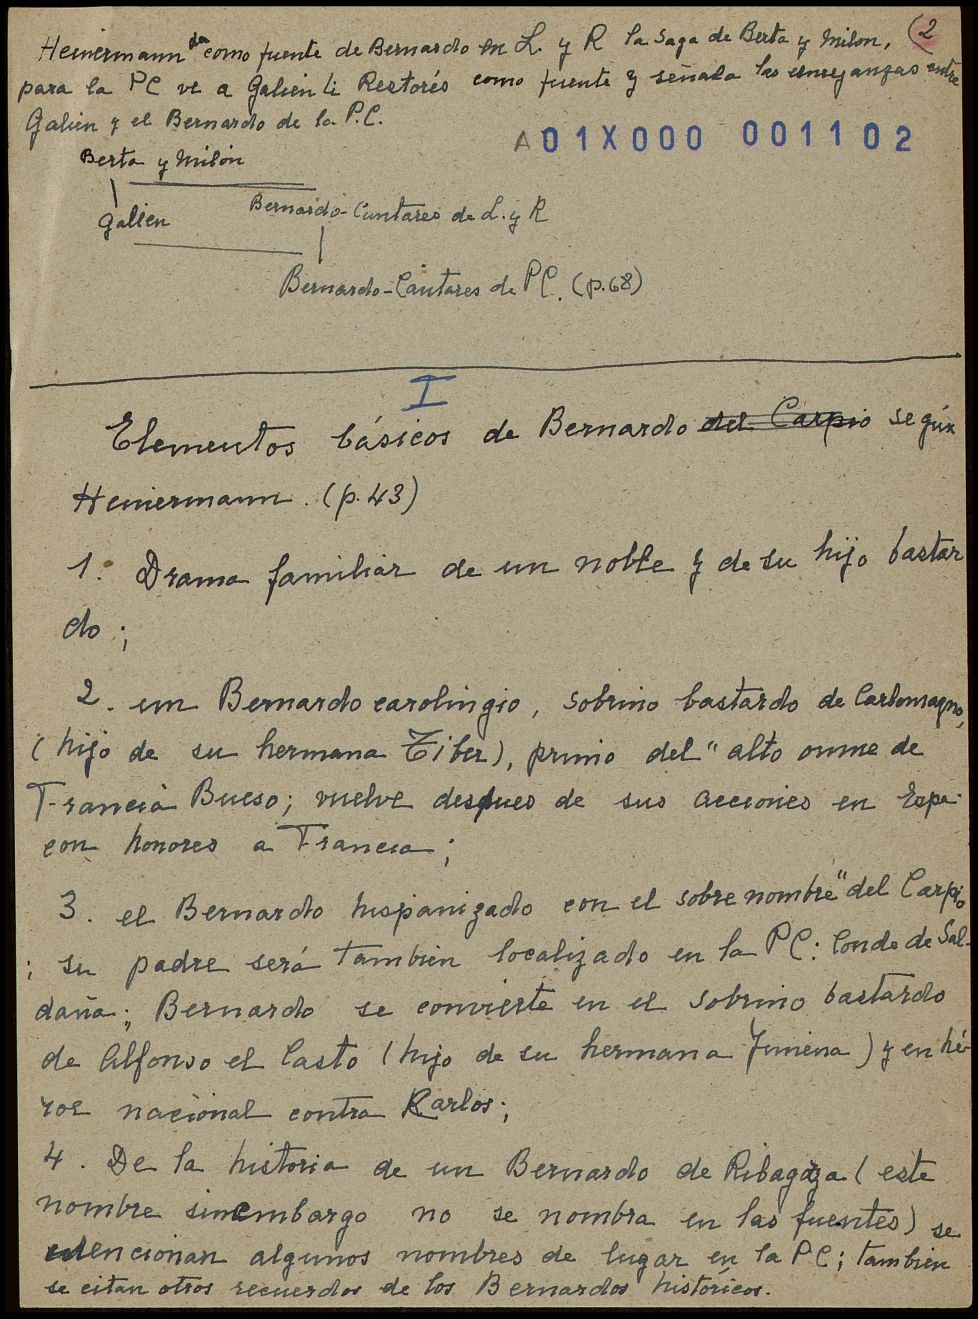 Heinermann da como fuente de Bernardo en L. y R la saga de Berta y Milon, (2
para la PC ve a Galien li Restorés como fuente y señala las semejanzas entre
Galien y el Bernardo de la P.C.
A01X000 001102
Berta y Milón
Galien Bernardo-Cantares de L. y R
Bernardo-Cantares de PC. (p.68)
I
Elementos básicos de Bernardo del Carpio según
Heinermann. (p.43)
1. Drama familiar de un noble y de su hijo bastar
do;
2. un Bernardo carolingio, sobrino bastardo de Carlomagno,
(hijo de su hermana Tiber), primo del "alto omne de
Francia Bueso; vuelve despues de sus acciones en Espa-
con honores a Francia;
3. el Bernardo hispanizado con el sobrenombre "del Carpio
; su padre será tambien localizado en la PC: Conde de Sal-
daña; Bernardo se convierte en el sobrino bastardo
de Alfonso el Casto (hijo de su hermana Jimena) y en hé-
roe nacional contra Karlos;
4. De la historia de un Bernardo de Ribagoza (este
nombre sinembargo no se nombra en las fuentes) se
mencionan algunos nombres de lugar en la PC; tambien
se citan otros recuerdos de los Bernardos históricos.